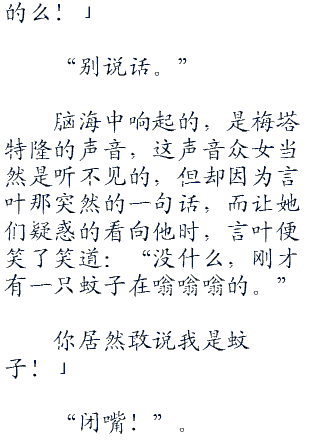 的么！」
“别说话。”
脑海中响起的，是梅塔
特隆的声音，这声音众女当
然是听不见的，但却因为言
叶那突然的一句话，而让她
们疑惑的看向他时，言叶便
笑了笑道：“没什么，刚才
有一只蚊子在嗡嗡嗡的。”
你居然敢说我是蚊
子！」
“闭嘴！”。